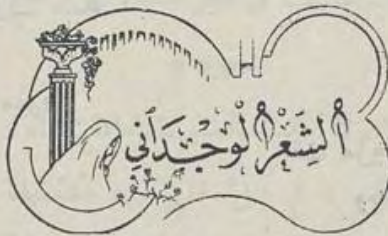 الشِعْرُ الوِجْدَاني